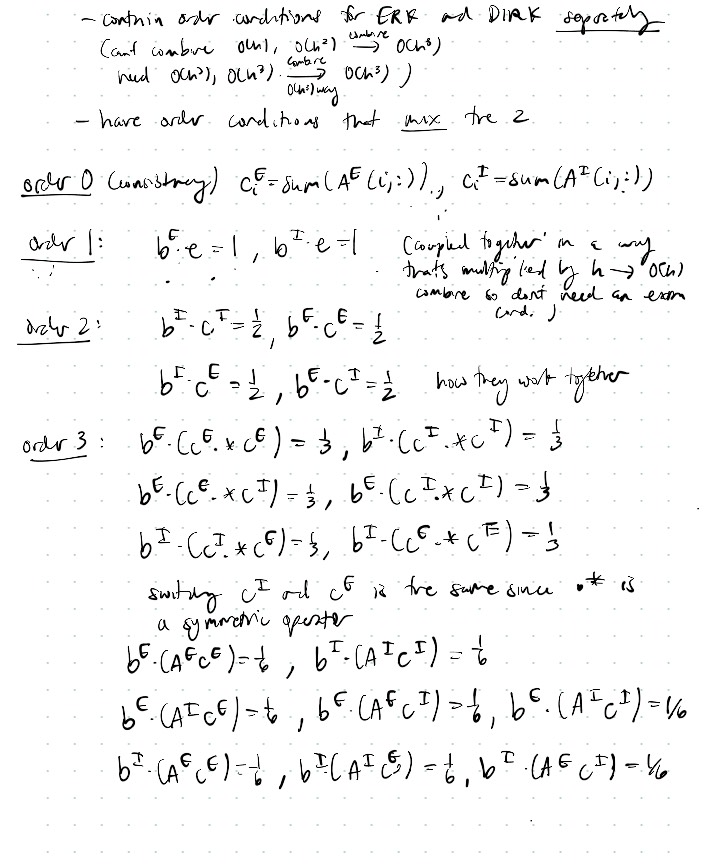 - contain order conditions for ERK and DIRK separately
(cant combine O(h), O(h²) combine → O(h³)
need O(h³), O(h³) combine → O(h³) )
O(h³) way
- have order conditions that mix the 2
order 0 (consistency) c_i^E = sum(A^E(i,:)), c_i^I = sum(A^I(i,:))
order 1: b^E·e = 1, b^I·e = 1 (coupled together in a way
thats multiplied by h → O(h)
combine so dont need an extra
cond.)
order 2: b^I·c^I = 1/2, b^E·c^E = 1/2
b^I·c^E = 1/2, b^E·c^I = 1/2 how they work together
order 3: b^E·(c^E.*c^E) = 1/3, b^I·(c^I.*c^I) = 1/3
b^E·(c^E.*c^I) = 1/3, b^E·(c^I.*c^I) = 1/3
b^I·(c^I.*c^E) = 1/3, b^I·(c^E.*c^E) = 1/3
switching c^I and c^E is the same since .* is
a symmetric operator
b^E·(A^E c^E) = 1/6, b^I·(A^I c^I) = 1/6
b^E·(A^I c^E) = 1/6, b^E·(A^E c^I) = 1/6, b^E·(A^I c^I) = 1/6
b^I·(A^E c^E) = 1/6, b^I(A^I c^E) = 1/6, b^I·(A^E c^I) = 1/6